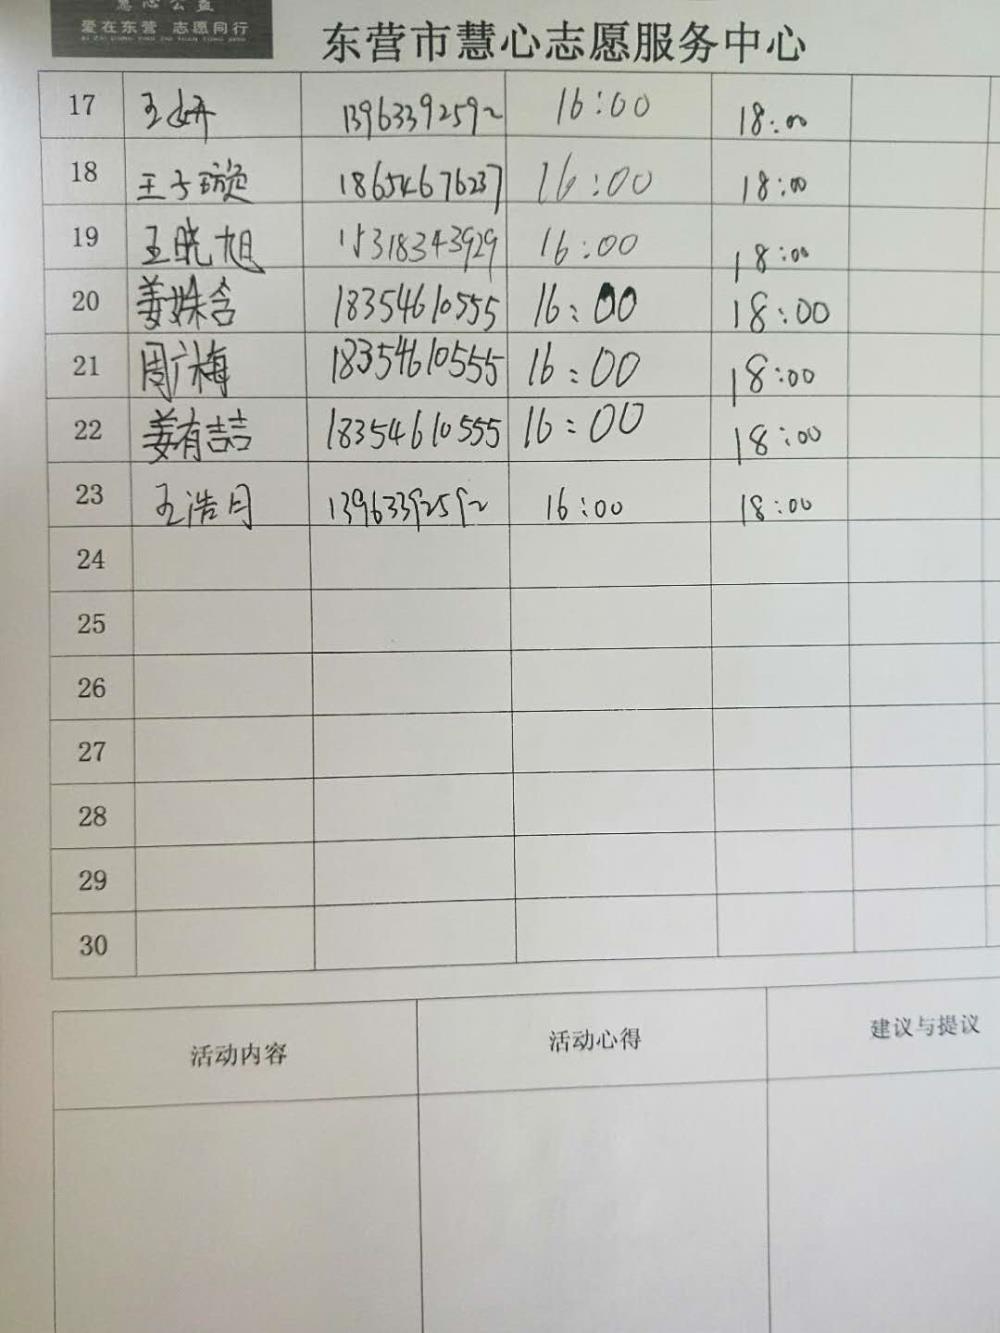 慧心公益
爱在东营 志愿同行
东营市慧心志愿服务中心
17 王妍 13963392592 16:00 18:00
18 王子璇 18654676237 16:00 18:00
19 王晓旭 15318343929 16:00 18:00
20 姜姝含 18354610555 16:00 18:00
21 周广梅 18354610555 16:00 18:00
22 姜有喆 18354610555 16:00 18:00
23 王浩月 13963392592 16:00 18:00
24
25
26
27
28
29
30
活动内容 活动心得 建议与提议